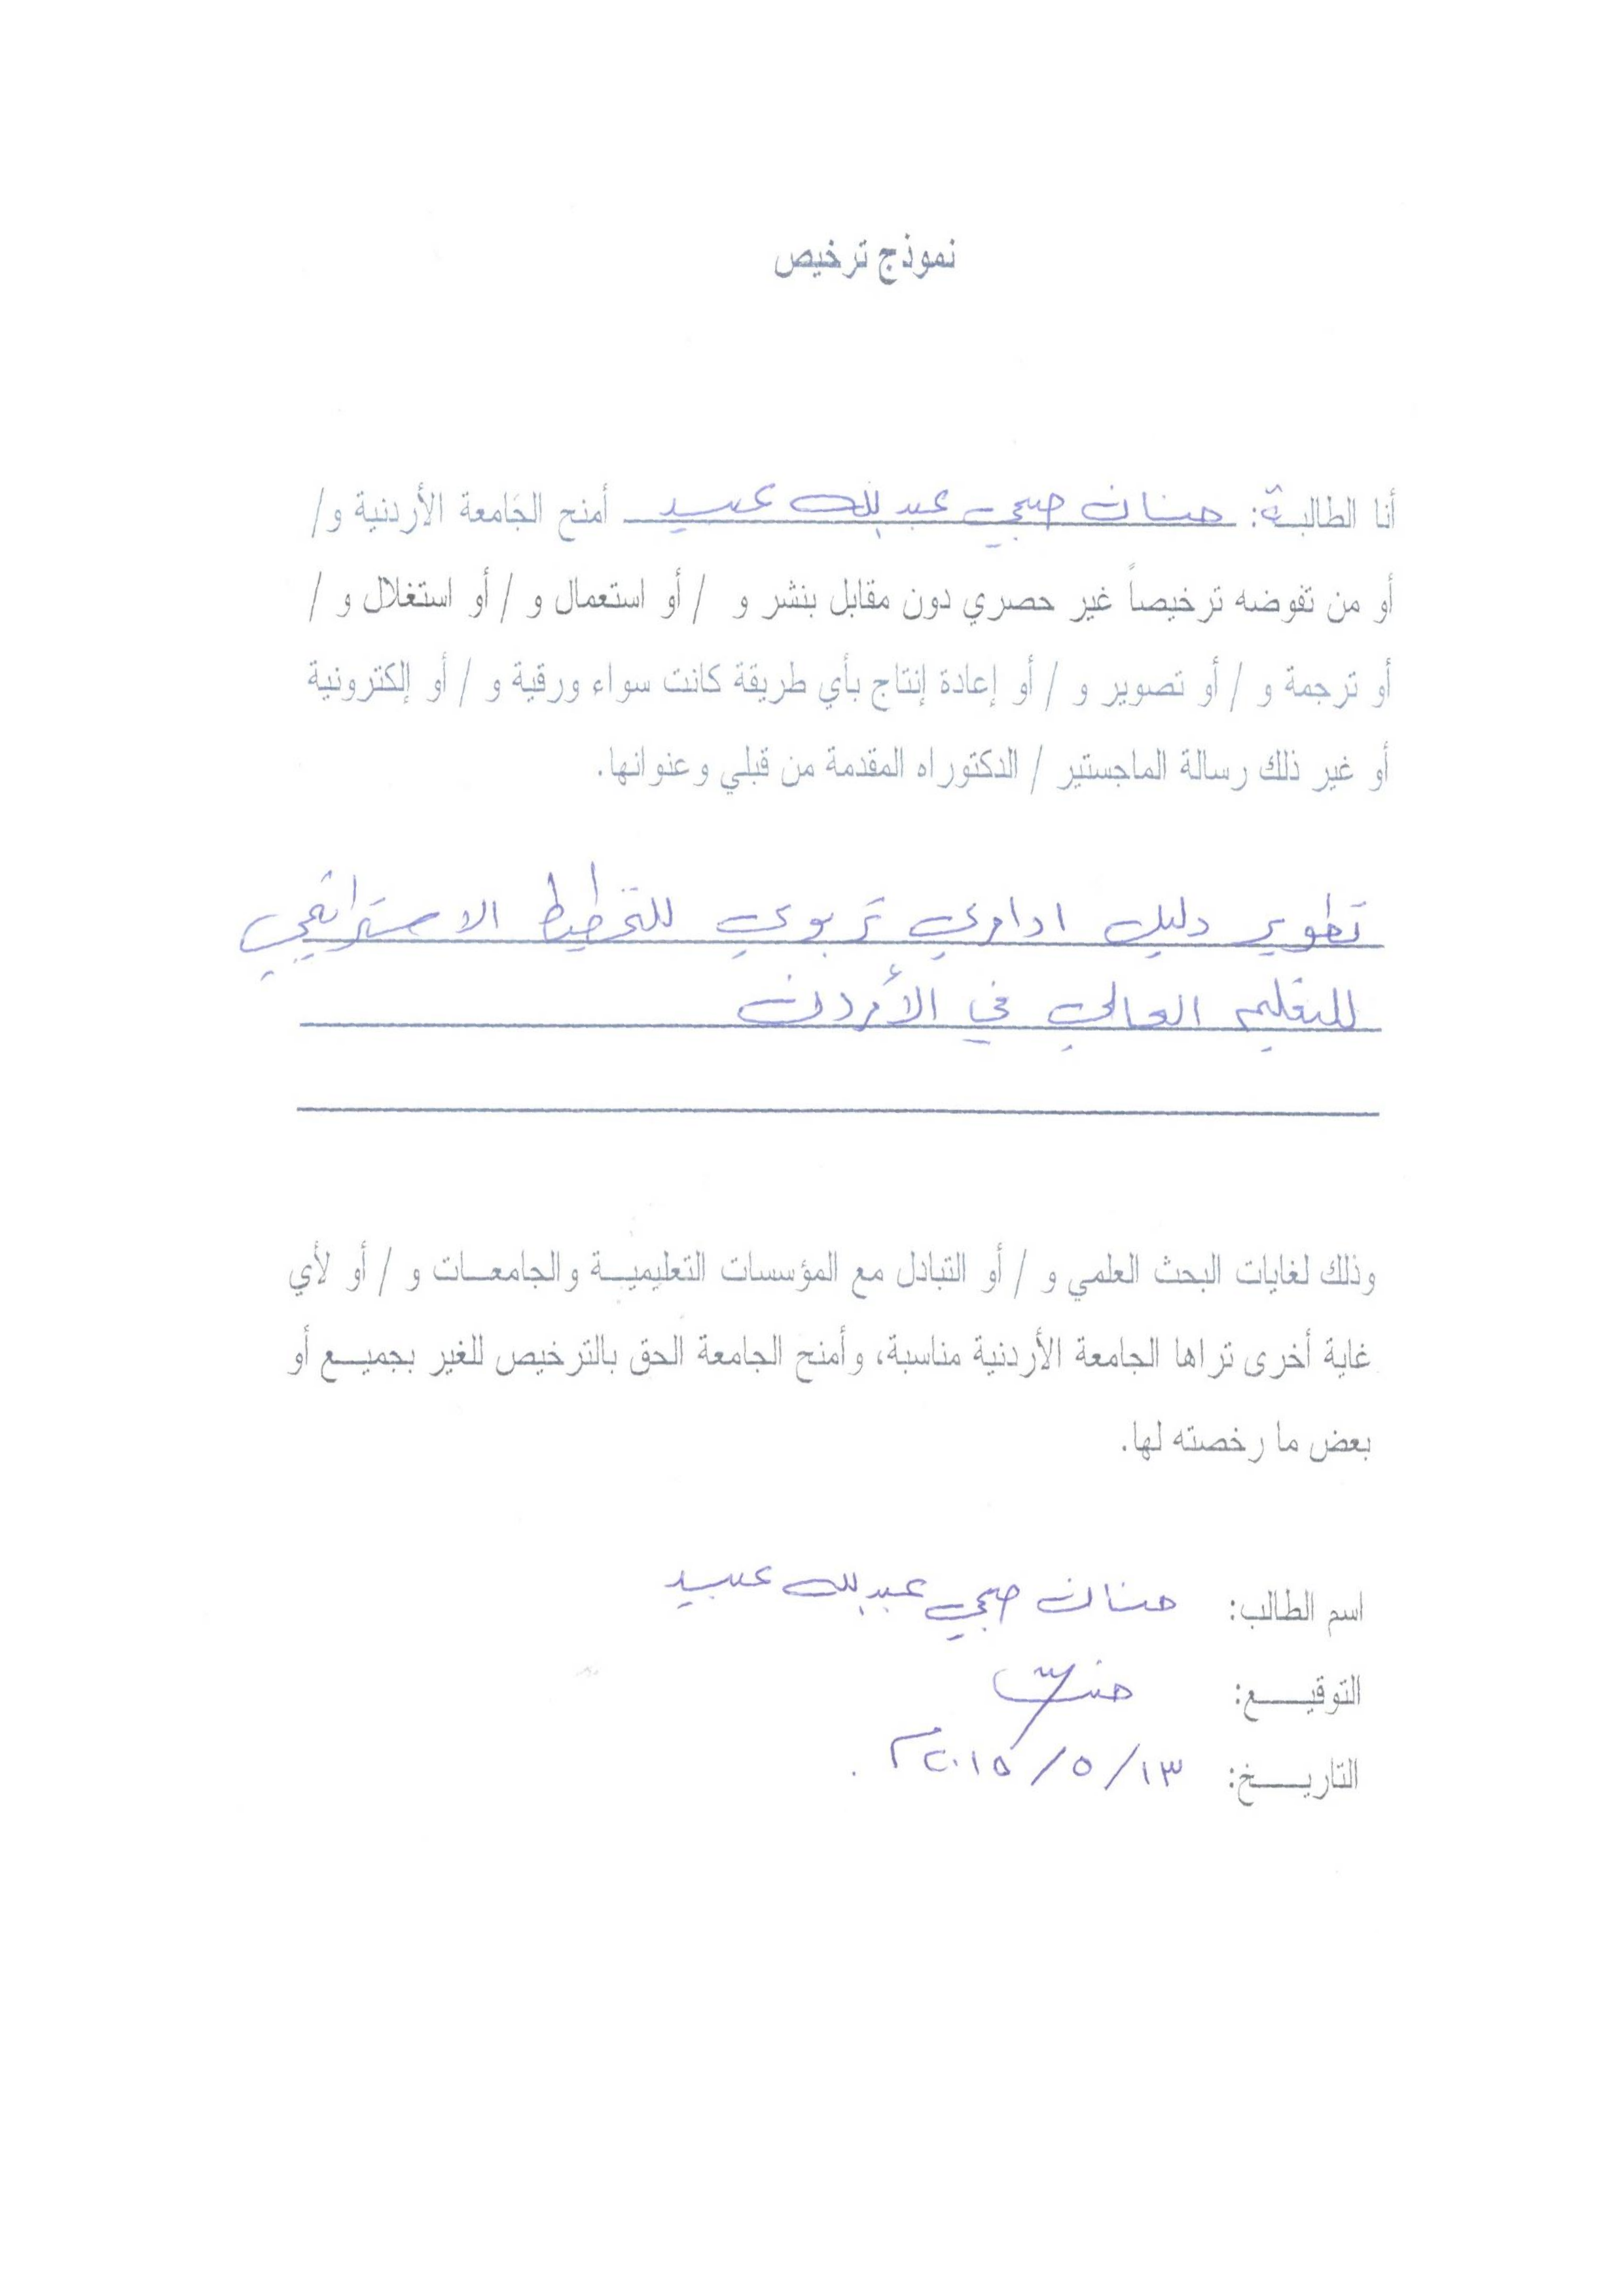 نموذج ترخيص
أنا الطالبة: حنان صبحي عبد الله عبيد أمنح الجامعة الأردنية و/
أو من تفوضه ترخيصاً غير حصري دون مقابل بنشر و / أو استعمال و / أو استغلال و /
أو ترجمة و / أو تصوير و / أو إعادة إنتاج بأي طريقة كانت سواء ورقية و / أو إلكترونية
أو غير ذلك رسالة الماجستير / الدكتوراه المقدمة من قبلي وعنوانها.
تطوير دليل اداري تربوي للتخطيط الاستراتيجي
للتعليم العالي في الأردن
وذلك لغايات البحث العلمي و / أو التبادل مع المؤسسات التعليمية والجامعات و / أو لأي
غاية أخرى تراها الجامعة الأردنية مناسبة، وأمنح الجامعة الحق بالترخيص للغير بجميع أو
بعض ما رخصته لها.
اسم الطالب: حنان صبحي عبد الله عبيد
التوقيع: حنان
التاريخ: ١٣ / ٥ / ٢٠١٥ م .